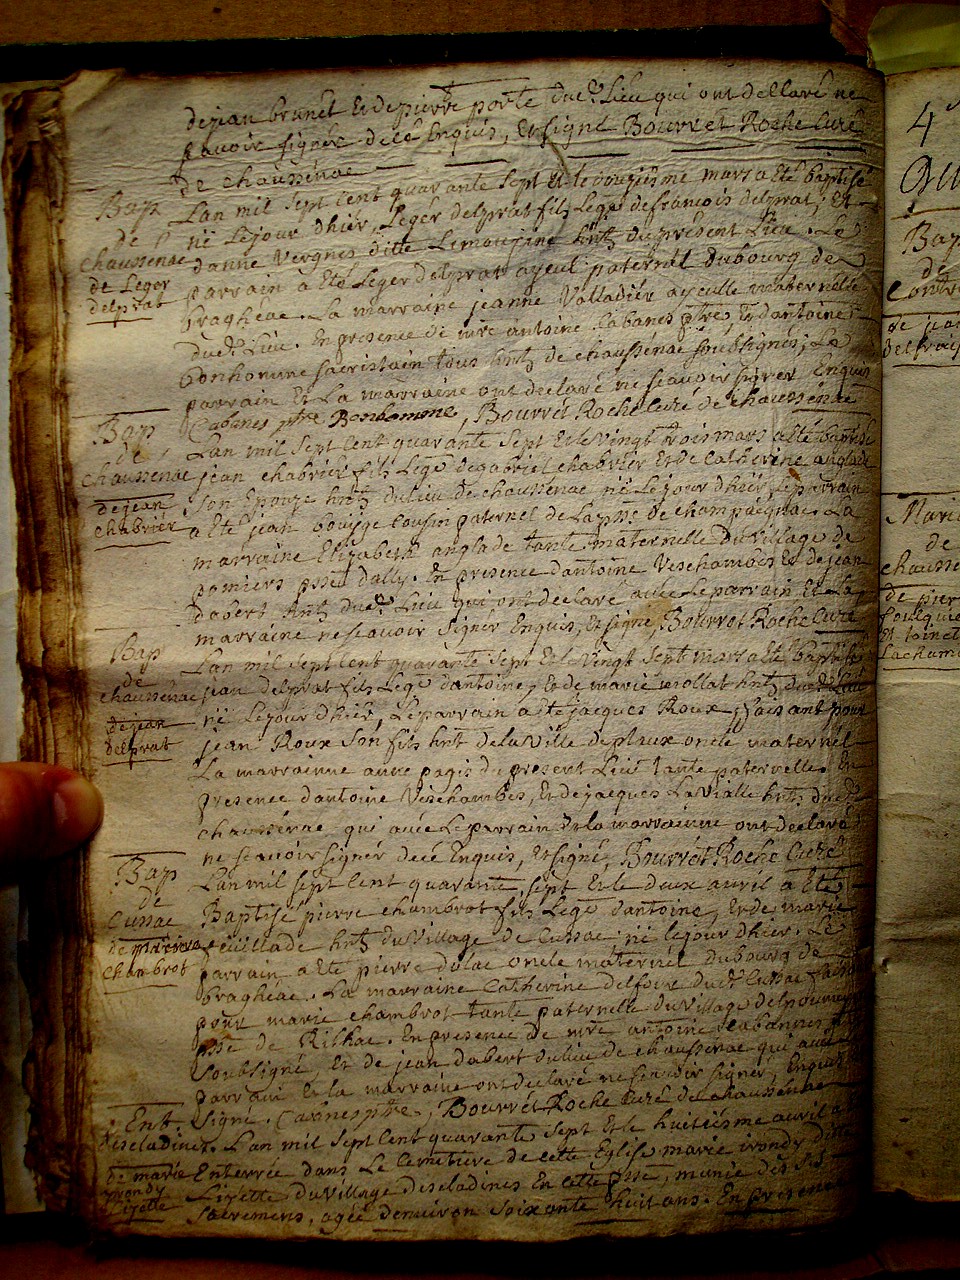 dejean brunét Et depierre porte dud. Lieu qui ont déllaré ne
scavoir signér dece Enquis, Et signé Bourrét Roche Curé
de chaussénac
Bap
de
chaussenac
de Leger
delprat
Lan mil sept cent quarante sept Et le mars a Eté baptisé
né Lejour dhiér, Legér delprat fils Lege defrancois delprat, Et
danne Vergnes ditte Lemouzine hnt du présent Lieu. Le
parrain a Eté Leger delprat ayeul paternél dubourg de
braghéac. La marraine jeanne Valladiér ayeulle maternélle
dud. Lieu. En presence de mre antoine Cabanes ptre, Et dantoine
bonhomme sacristain tous hnt de chaussénac soubsignés; Le
parrain Et La marraine ont declaré ne scavoir signer Enquis
Cabanes ptre Bonhomme, Bourrét Roche Curé de chaussénac
Bap
de
chaussenac
de jean
chabriér
Lan mil sept cent quarante sept Et le Vingt trois mars a Eté baptisé
jean chabriér fils Lege de gabriel chabriér Et de Catherine anglade
son Epouze hnt du lieu de chaussénac né Le jour dhiér, Le parrain
a Eté jean bouyge Cousin paternel de La psse de champaignac. La
marraine Elizabeth anglade tante maternelle du Village de
pomiers psse dally. En presence dantoine Veschambes Et de jean
dabert hnt dud. Lieu qui ont declaré avéc Le parrain Et La
marraine ne scavoir signer Enquis, Et signé, Bourrét Roche Curé
Bap
de
chaussénac
de jean
delprat
Lan mil sept cent quarante sept Et le Vingt sept mars a Eté baptisé
jean delprat fils Lege dantoine, Et de marie mollat hnt dud. Lieu
né Le jour dhiér, Le parrain a ete jacques Roux, faisant pour
jean Roux son fils hnt de la Ville de pleaux oncle maternél
La marrainne anne pagis du present Lieu tante paternelle. En
presence dantoine Veschambes, Et de jacques La Vialle hnt dud
chaussénac qui avéc Le parrain Et la marrainne ont declaré
ne scavoir signér de ce Enquis, Et signé, Bourrét Roche Curé
Bap
de
Cussac
de pierre
chambrot
Lan mil sept cent quarante, sept Et le deux avril a Eté
Baptisé pierre chambrot fils Lege dantoine, Et de marie
feuillade hnt du Village de Cussac né le jour dhiér. Le
parrain a Eté pierre dulac oncle maternél dubourg de
braghéac. La marraine Catherine delfour dud. Cussac
pour marie chambrot tante paternelle du Village
psse de Rilhac. En presence de mre antoine Cabannes
soubsigné, Et de jean dabert du lieu de chaussenac qui avéc
parrain Et la marraine ont declaré ne scavoir signér, Enquis
signé. Cabanes ptre, Bourrét Roche Curé de chaussénac
Ent.
descladines.
de marie
yrondy
Lizette
Lan mil sept cent quarante sept Et le huitiéme avril a
Enterrée dans Le Cemitiere de cette Eglise marie irondy ditte
Lizette du Village descladines En cette psse, munie des St
sacremens, agée denuiron soixante huit ans. En presence
4
Bap
de
Contre
de jean
delpra
Mari
de
chaussen
de pier
foulquie
Et toinet
Lachamb